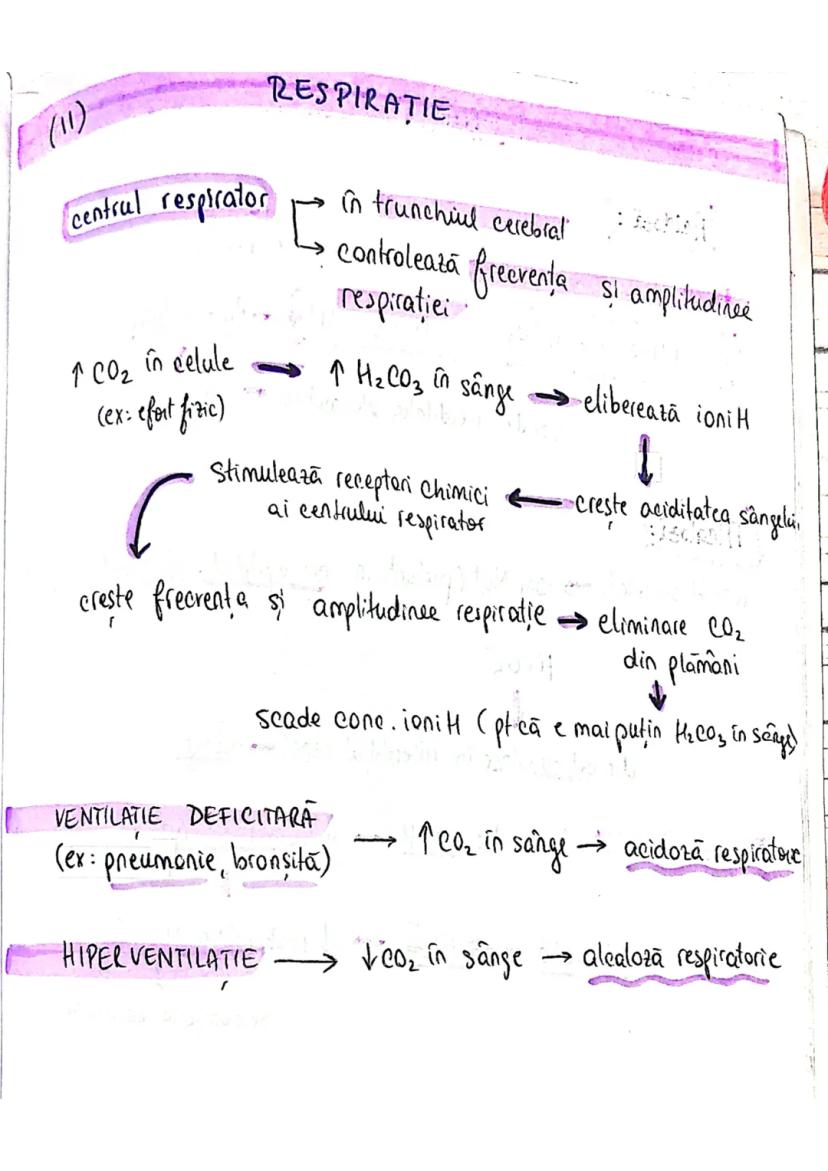 RESPIRAȚIE
(11)
centrul respirator → în trunchiul cerebral
→ controlează frecvența și amplitudinea
respirației
↑ CO₂ în celule → ↑ H₂CO₃ în sânge → eliberează ioni H
(ex: efort fizic)
↓
stimulează receptori chimici ← crește aciditatea sângelui
ai centrului respirator
crește frecvența și amplitudinea respirație → eliminare CO₂
din plămâni
↓
scade conc. ioni H (pt că e mai puțin H₂CO₃ în sânge)
VENTILAȚIE DEFICITARĂ → ↑ CO₂ în sânge → acidoză respiratorie
(ex: pneumonie, bronșită)
HIPERVENTILAȚIE → ↓ CO₂ în sânge → alcaloză respiratorie